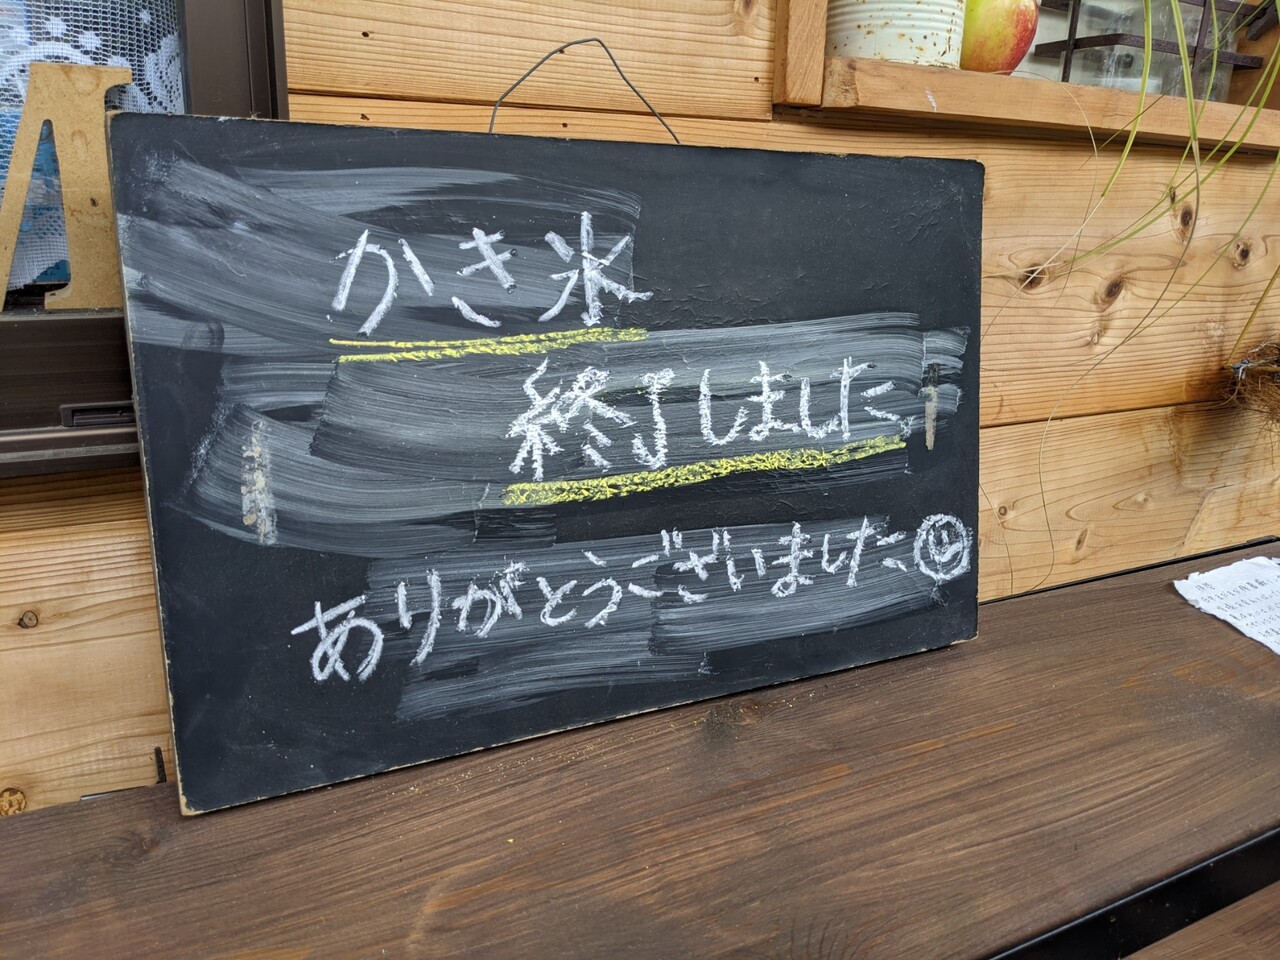 かき氷
終了しました!
ありがとうございました